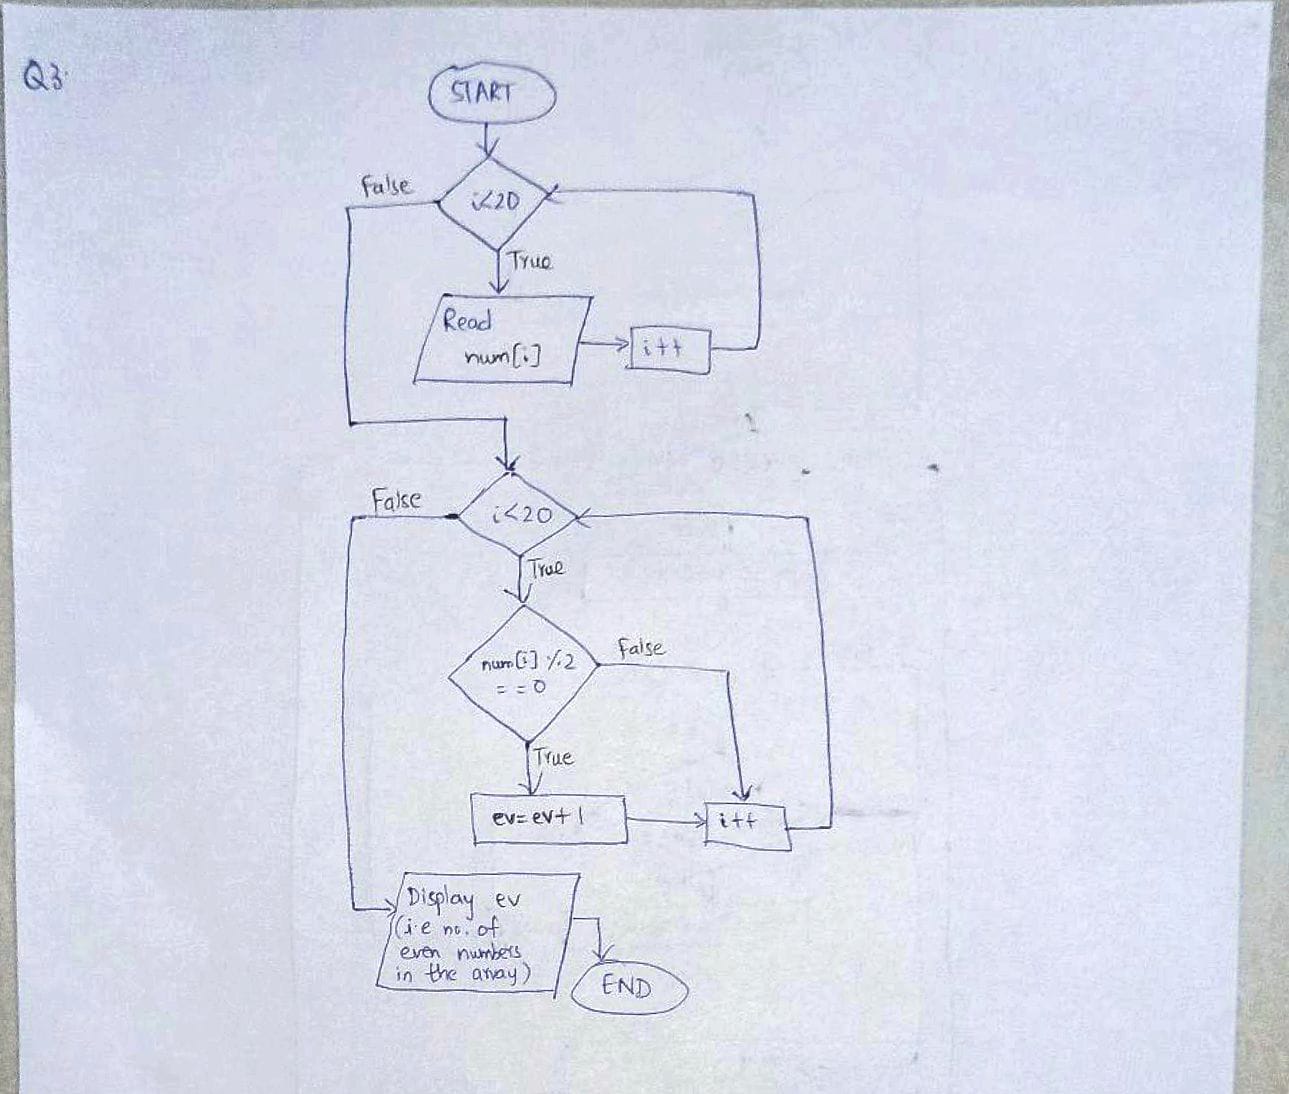 Q3.
START
False
i<20
True
Read
num[i]
i++
False
i<20
True
num[i] %2
==0
False
True
ev=ev+1
i++
Display ev
(i.e no. of
even numbers
in the array)
END